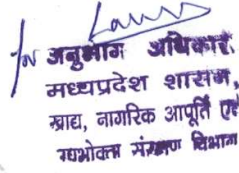 for अनुभाग अधिकारी
मध्यप्रदेश शासन,
खाद्य, नागरिक आपूर्ति एवं
उपभोक्ता संरक्षण विभाग